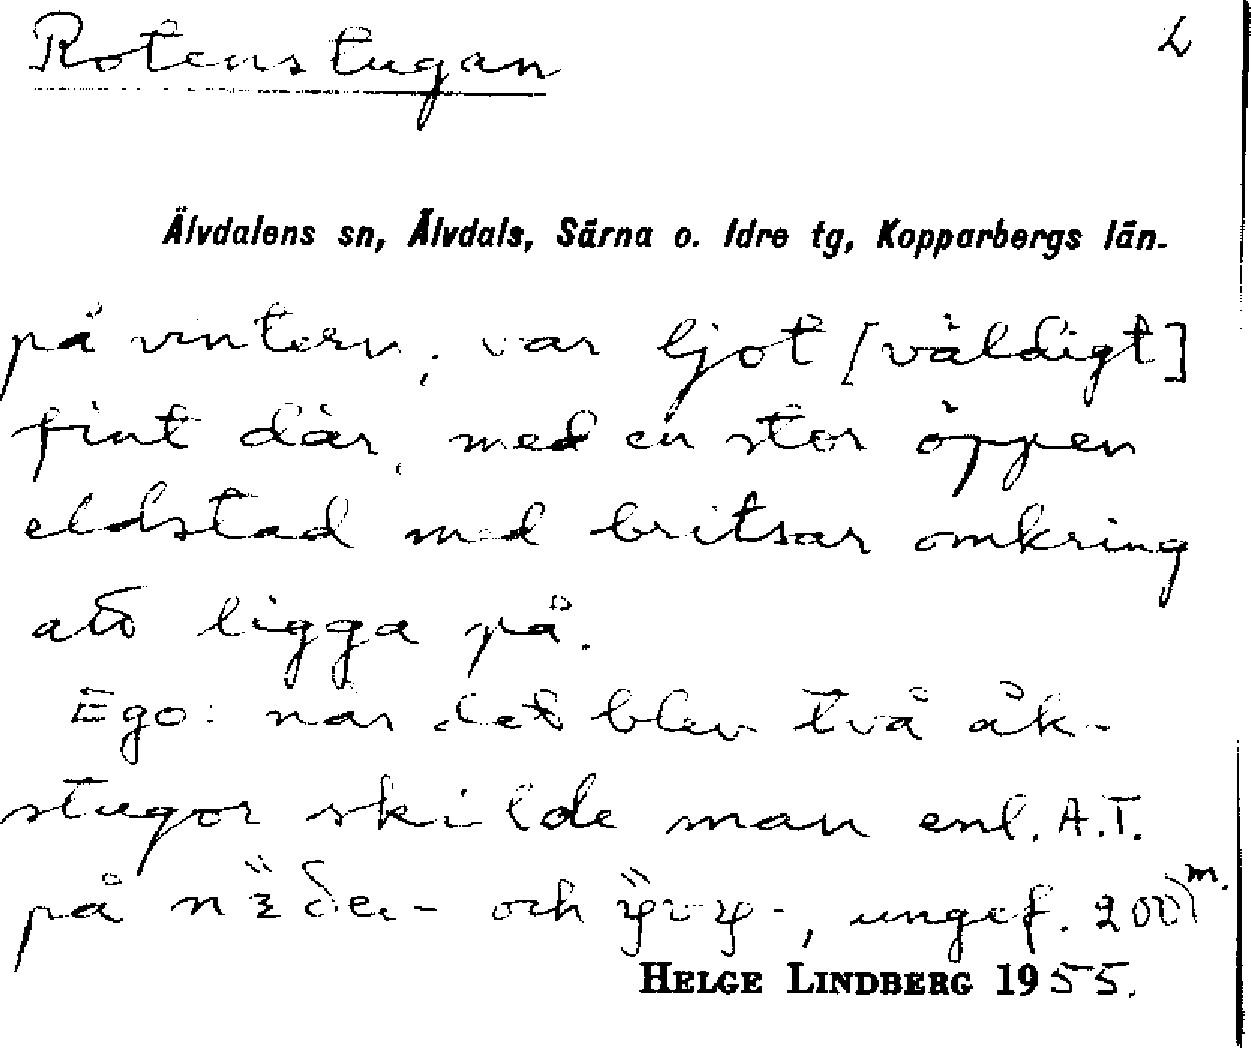 Rotenstugan
Älvdalens sn, Älvdals, Särna o. Idre tg, Kopparbergs län.
på vintern, var ljot [väldigt]
fint där, med en stor öppen
eldstad med britsar omkring
att ligga på.
Ego: när det blev två åk-
stugor skilde man enl. A.T.
på och , ungef. 200 m.
HELGE LINDBERG 1955.